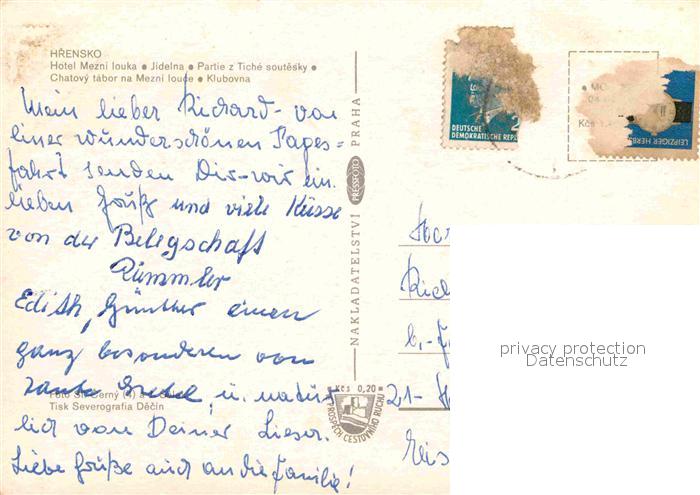 HŘENSKO
Hotel Mezní louka ● Jídelna ● Partie z Tiché soutěsky ●
Chatový tábor na Mezní louce ● Klubovna
Mein lieber Richard - von
einer wunderschönen Tages=
fahrt senden Dir - wir ein.
lieben Gruß und viele Küsse
von der Belegschaft
Rümmler
Edith, Günther einen
ganz besonderen von
Tante Gretel, u. natür
lich von Deiner Lieser.
Liebe Grüße auch an die Familie!
Foto St. Černý (4) a
Tisk Severografia Děčín
NAKLADATELSTVÍ PRESSFOTO PRAHA
Kčs 0,20
PROSPĚCH CESTOVNÍHO RUCHU
DEUTSCHE
DEMOKRATISCHE REPU
2
LEIPZIGER HERBS
Kčs
21-
privacy protection
Datenschutz